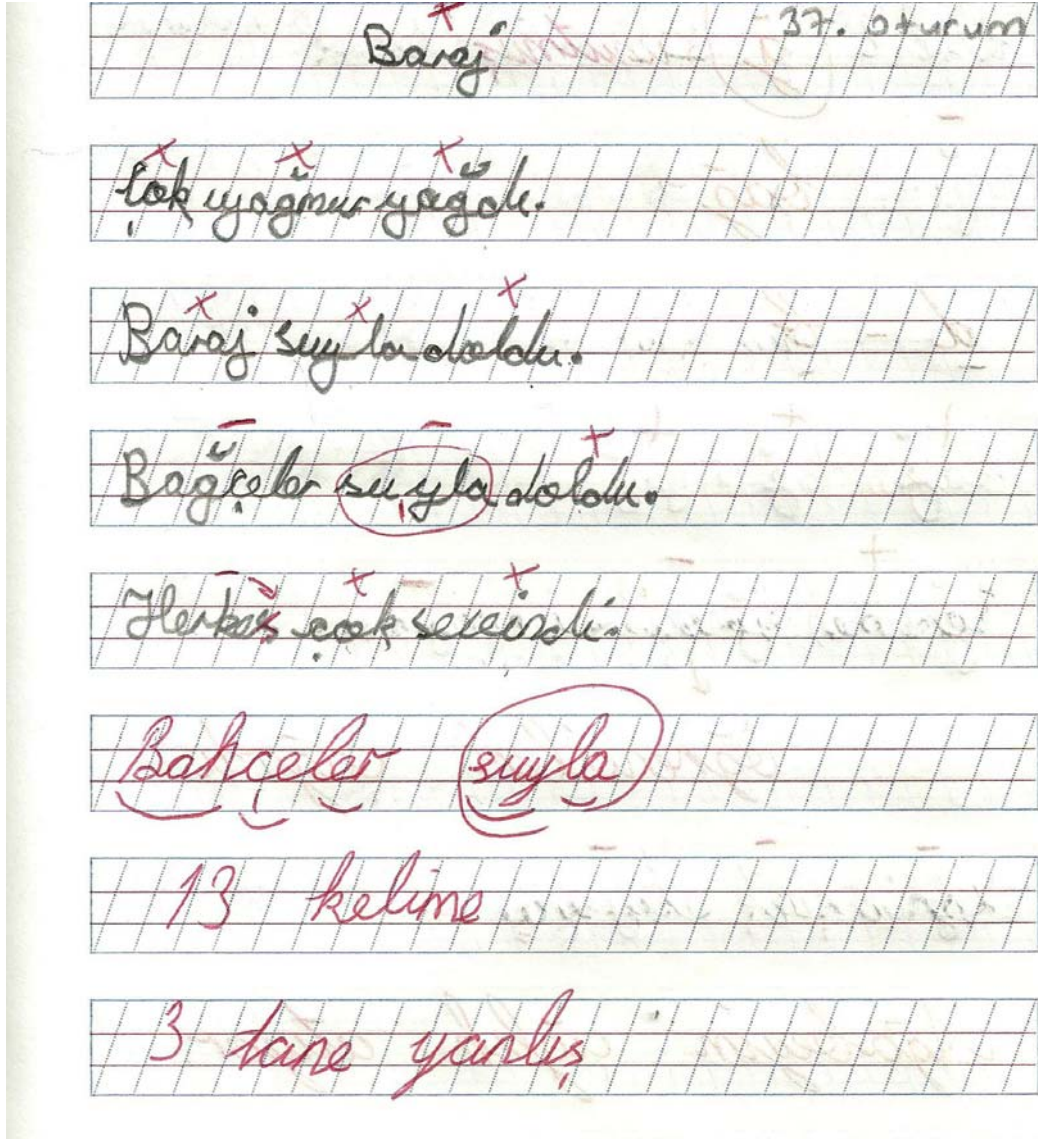 37. oturum
Baraj
Çok yağmur yağdı.
Baraj suyla doldu.
Bağçeler suyla doldu.
Herkeş çok sevindi.
Bahçeler suyla
13 kelime
3 tane yanlış